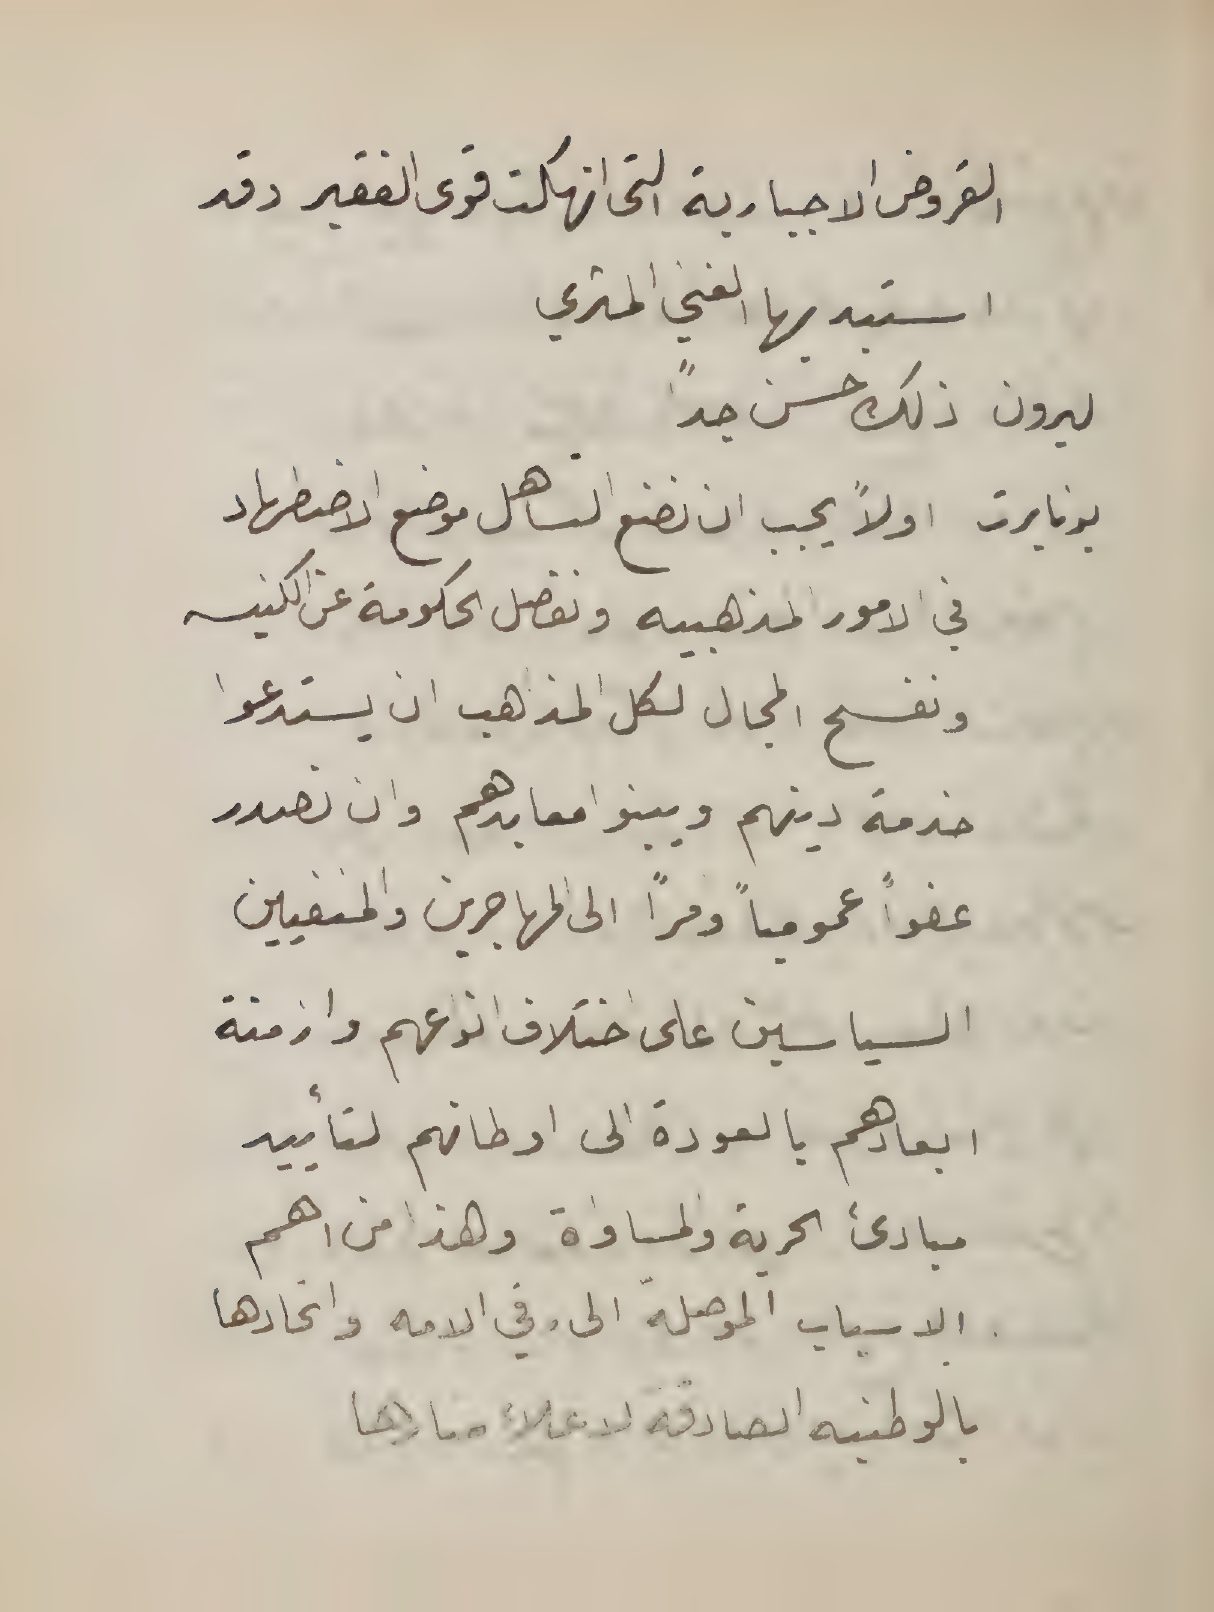 القروض الاجبارية التى انهكت قوى الفقير وقد
استبد بها الغني المثري
ليرون ذلك حسن جداً
بونابرت اولاً يجب ان نضع التساهل موضع الاضطهاد
في الامور المذهبيه ونفصل الحكومة عن الكنيسه
ونفسح المجال لكل المذاهب ان يستدعوا
خدمة دينهم ويبنوا معابدهم وان نصدر
عفواً عمومياً ومراً الى المهاجرين والمنفيين
السياسين على اختلاف انواعهم وازمنة
ابعادهم بالعودة الى اوطانهم لتأييد
مبادئ الحرية والمساواة وهذا من اهم
الاسباب الموصلة الى رقي الامه واتحادها
بالوطنيه الصادقة لاعلاء منارها